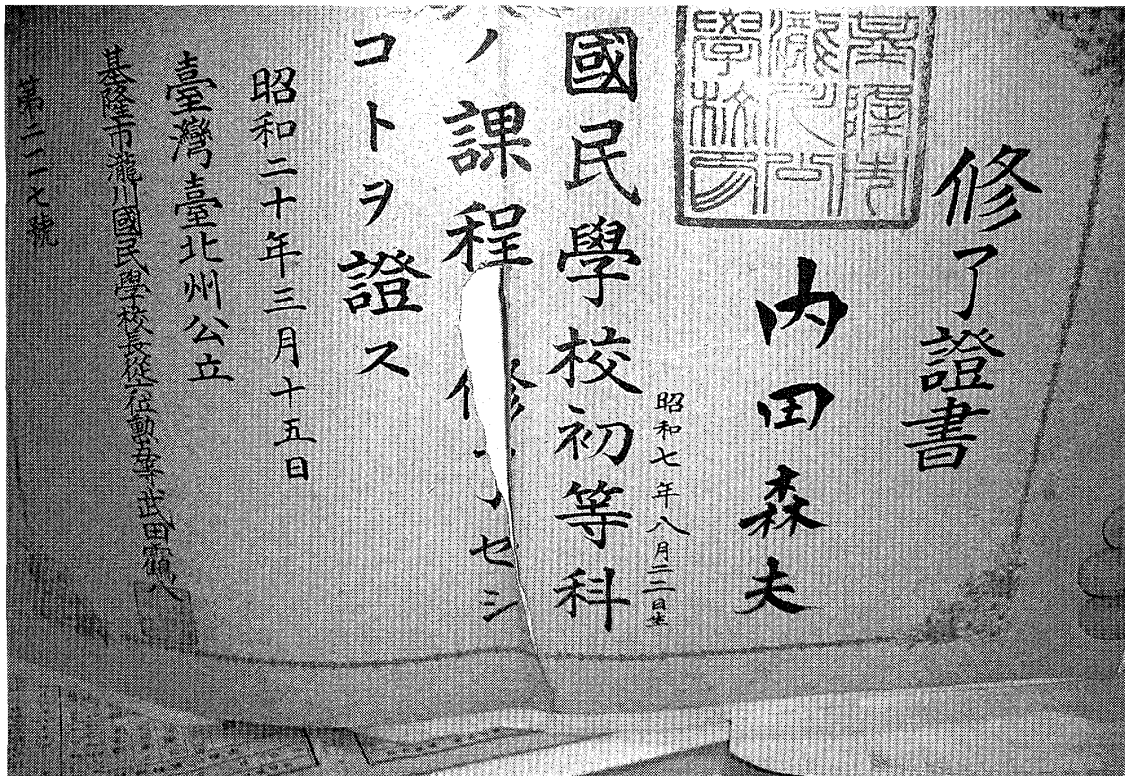 修了證書
基隆市
瀧川公
學校印
內田森夫
昭和七年八月二二日生
國民學校初等科
ノ課程 修了セシ
コトヲ證ス
昭和二十年三月十五日
臺灣臺北州公立
基隆市瀧川國民學校長從六位勳五等武田靍八
第二一七號